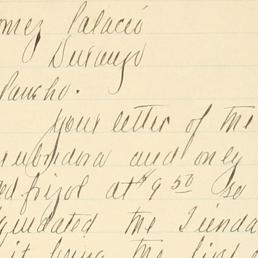 omez Palacio
Durango
Pancho.
your letter of the
and only
frijol at $9 50 so
quidated the Tienda
it being the first